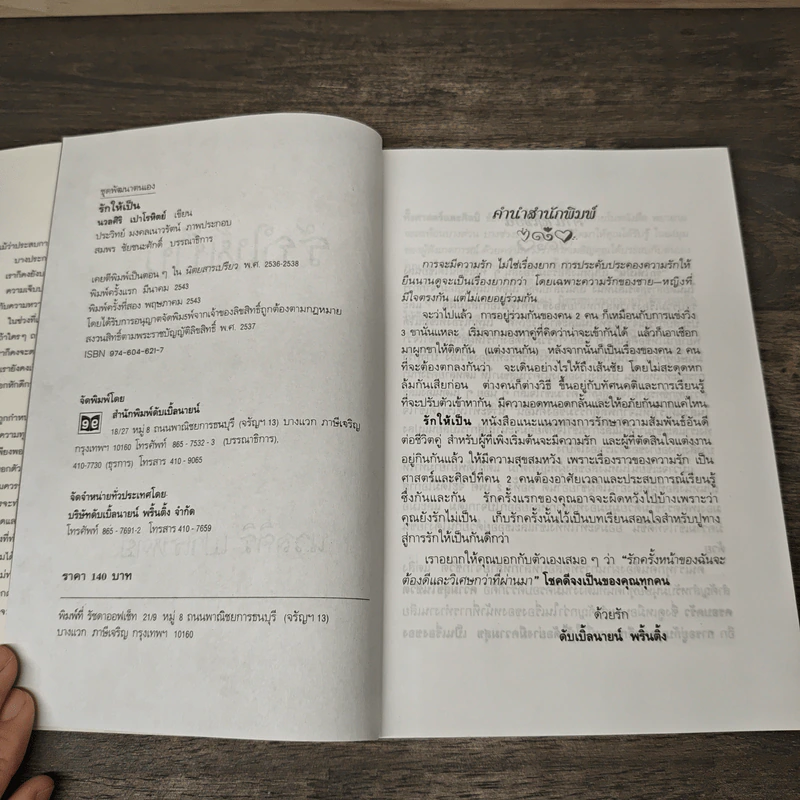 ชุดพัฒนาตนเอง
รักให้เป็น
นวลศิริ เปาโรหิตย์ เขียน
ประวิทย์ มงคลเนาวรัตน์ ภาพประกอบ
สมพร ชัยชนะศักดิ์ บรรณาธิการ
เคยตีพิมพ์เป็นตอน ๆ ใน นิตยสารเปรียว พ.ศ. 2536-2538
พิมพ์ครั้งแรก มีนาคม 2543
พิมพ์ครั้งที่สอง พฤษภาคม 2543
โดยได้รับการอนุญาตจัดพิมพ์จากเจ้าของลิขสิทธิ์ถูกต้องตามกฎหมาย
สงวนลิขสิทธิ์ตามพระราชบัญญัติลิขสิทธิ์ พ.ศ. 2537
ISBN 974-604-621-7
จัดพิมพ์โดย
สำนักพิมพ์ดับเบิ้ลนายน์
18/27 หมู่ 8 ถนนพาณิชยการธนบุรี (จรัญฯ 13) บางแวก ภาษีเจริญ
กรุงเทพฯ 10160 โทรศัพท์ 865-7532-3 (บรรณาธิการ),
410-7730 (ธุรการ) โทรสาร 410-9065
จัดจำหน่ายทั่วประเทศโดย
บริษัทดับเบิ้ลนายน์ พริ้นติ้ง จำกัด
โทรศัพท์ 865-7691-2 โทรสาร 410-7659
ราคา 140 บาท
พิมพ์ที่ รัชดาออฟเซ็ท 21/9 หมู่ 8 ถนนพาณิชยการธนบุรี (จรัญฯ 13)
บางแวก ภาษีเจริญ กรุงเทพฯ 10160
คำนำสำนักพิมพ์
การจะมีความรัก ไม่ใช่เรื่องยาก การประคับประคองความรักให้
ยืนนานดูจะเป็นเรื่องยากกว่า โดยเฉพาะความรักของชาย—หญิงที่
มีใจตรงกัน แต่ไม่เคยอยู่ร่วมกัน
จะว่าไปแล้ว การอยู่ร่วมกันของคน 2 คน ก็เหมือนกับการแข่งวิ่ง
3 ขานั่นแหละ เริ่มจากมองหาคู่ที่คิดว่าน่าจะเข้ากันได้ แล้วก็เอาเชือก
มาผูกขาให้ติดกัน (แต่งงานกัน) หลังจากนั้นก็เป็นเรื่องของคน 2 คน
ที่จะต้องตกลงกันว่า จะเดินอย่างไรให้ถึงเส้นชัย โดยไม่สะดุดหก
ล้มกันเสียก่อน ต่างคนก็ต่างวิธี ขึ้นอยู่กับทัศนคติและการเรียนรู้
ที่จะปรับตัวเข้าหากัน มีความอดทนอดกลั้นและให้อภัยกันมากแค่ไหน
รักให้เป็น หนังสือแนะแนวทางการรักษาความสัมพันธ์อันดี
ต่อชีวิตคู่ สำหรับผู้ที่เพิ่งเริ่มต้นจะมีความรัก และผู้ที่ตัดสินใจแต่งงาน
อยู่กินกันแล้ว ให้มีความสุขสมหวัง เพราะเรื่องราวของความรัก เป็น
ศาสตร์และศิลป์ที่คน 2 คนต้องอาศัยเวลาและประสบการณ์เรียนรู้
ซึ่งกันและกัน รักครั้งแรกของคุณอาจจะผิดหวังไปบ้างเพราะว่า
คุณยังรักไม่เป็น เก็บรักครั้งนั้นไว้เป็นบทเรียนสอนใจสำหรับปูทาง
สู่การรักให้เป็นกันดีกว่า
เราอยากให้คุณบอกกับตัวเองเสมอ ๆ ว่า "รักครั้งหน้าของฉันจะ
ต้องดีและวิเศษกว่าที่ผ่านมา" โชคดีจงเป็นของคุณทุกคน
ด้วยรัก
ดับเบิ้ลนายน์ พริ้นติ้ง